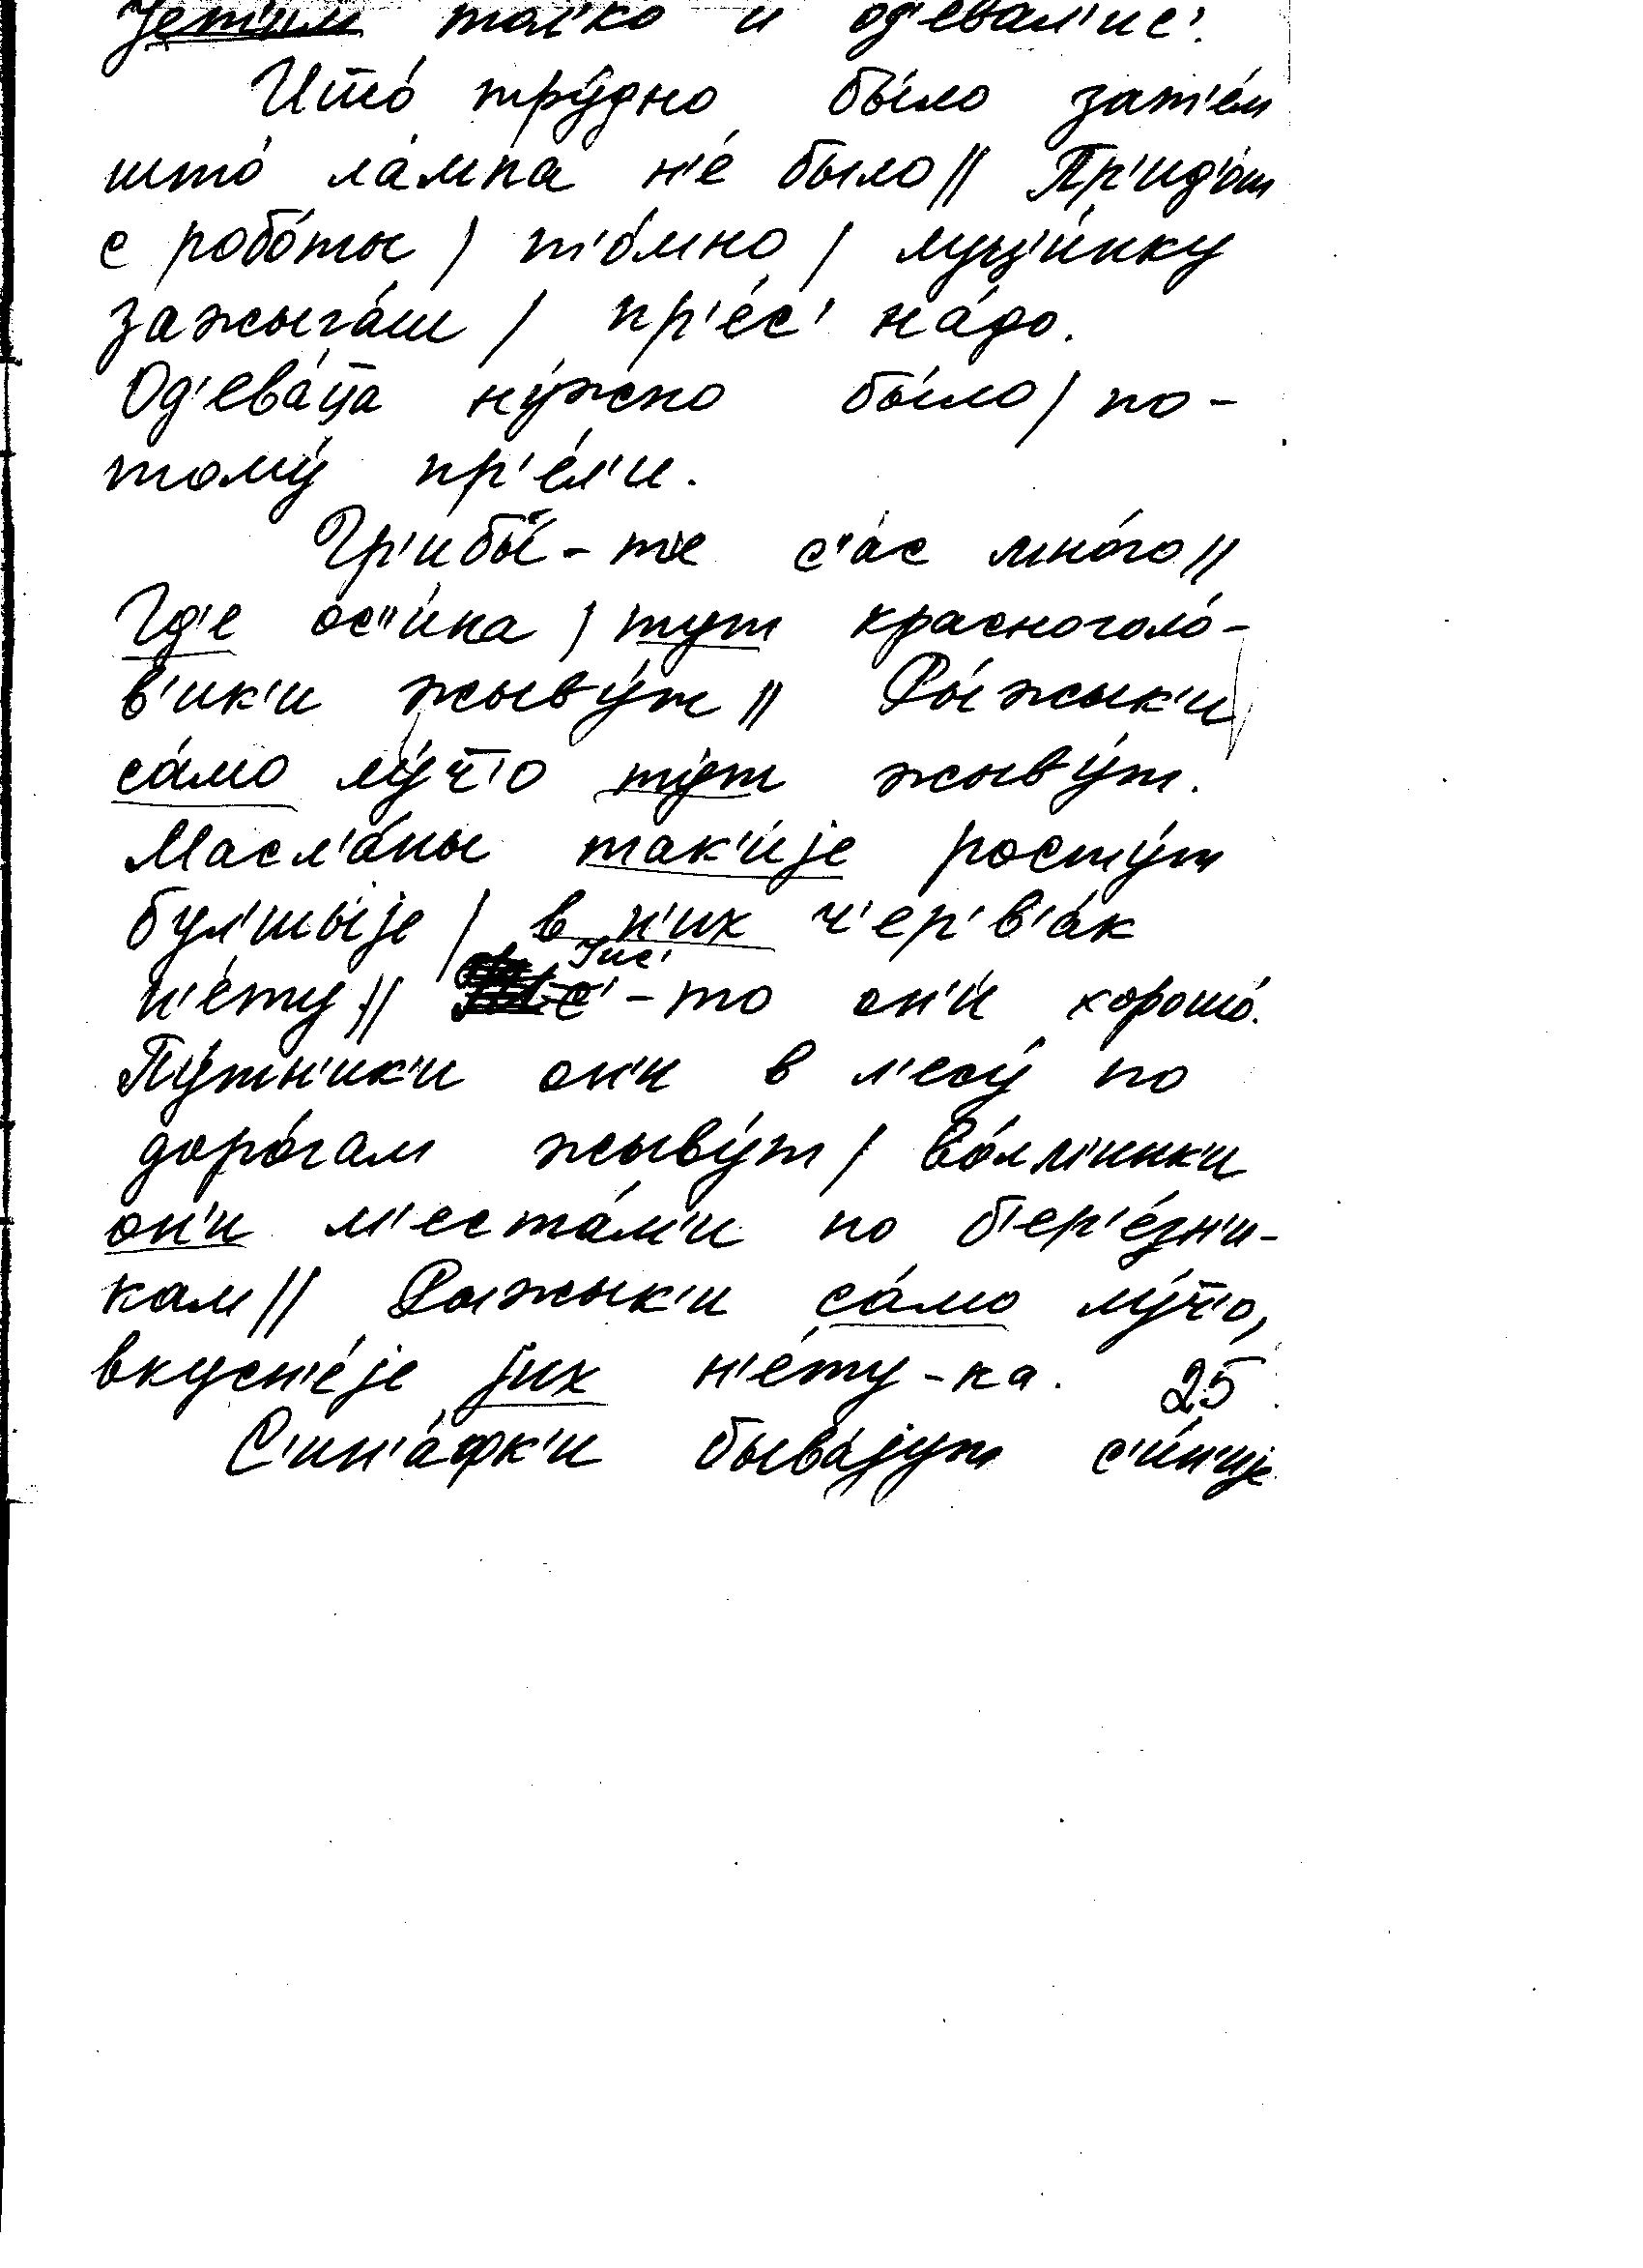 јет'им тол'ко и од'евал'ис'.
Што́ тру́дно бы́ло зат'е́м
што́ ла́мпа н'е́ было || Пр'ид'о́ш
с робо́ты / т'о́мно / лущ'и́нку
зажыга́ш / пр'е́с' на́до.
Од'ева́ц̄а ну́жно бы́ло / по-
тому́ пр'е́л'и.
Гр'ибы́-те с"а́с мно́го ||
Гд'е ос"и́на / тут красноголо́-
в'ик'и жыву́т || Ры́жык'и
са́мо лу́ч̄'о тут жыву́т.
Масл'а́ны так'и́је росту́т
бул'шы́је / в н'их ч'ер'в'а́к
н'е́ту || Јис'-то он'и́ хорошо́.
Пу́тн'ик'и он'и в л'есу́ по
доро́гам жыву́т / Во́лм'инк'и
он'и м'еста́м'и по б'ер'е́зн'и-
кам || Рыжык'и са́мо лу́ч̄'о,
вкусн'е́је јих н'е́ту-ка. 25
С'ин'а́фк'и быва́јут с'и́н'ије